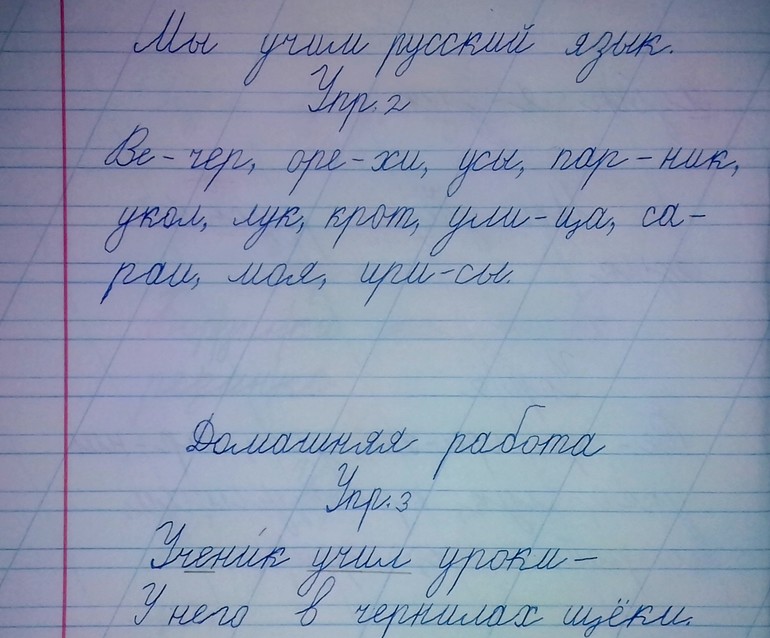 Мы учим русский язык.
Упр. 2
Ве-чер, оре-хи, усы, пар-ник,
укол, лук, крот, ули-ца, са-
раи, моя, ири-сы.
Домашняя работа
Упр. 3
Учени́к учил уроки-
У него в чернилах щёки.